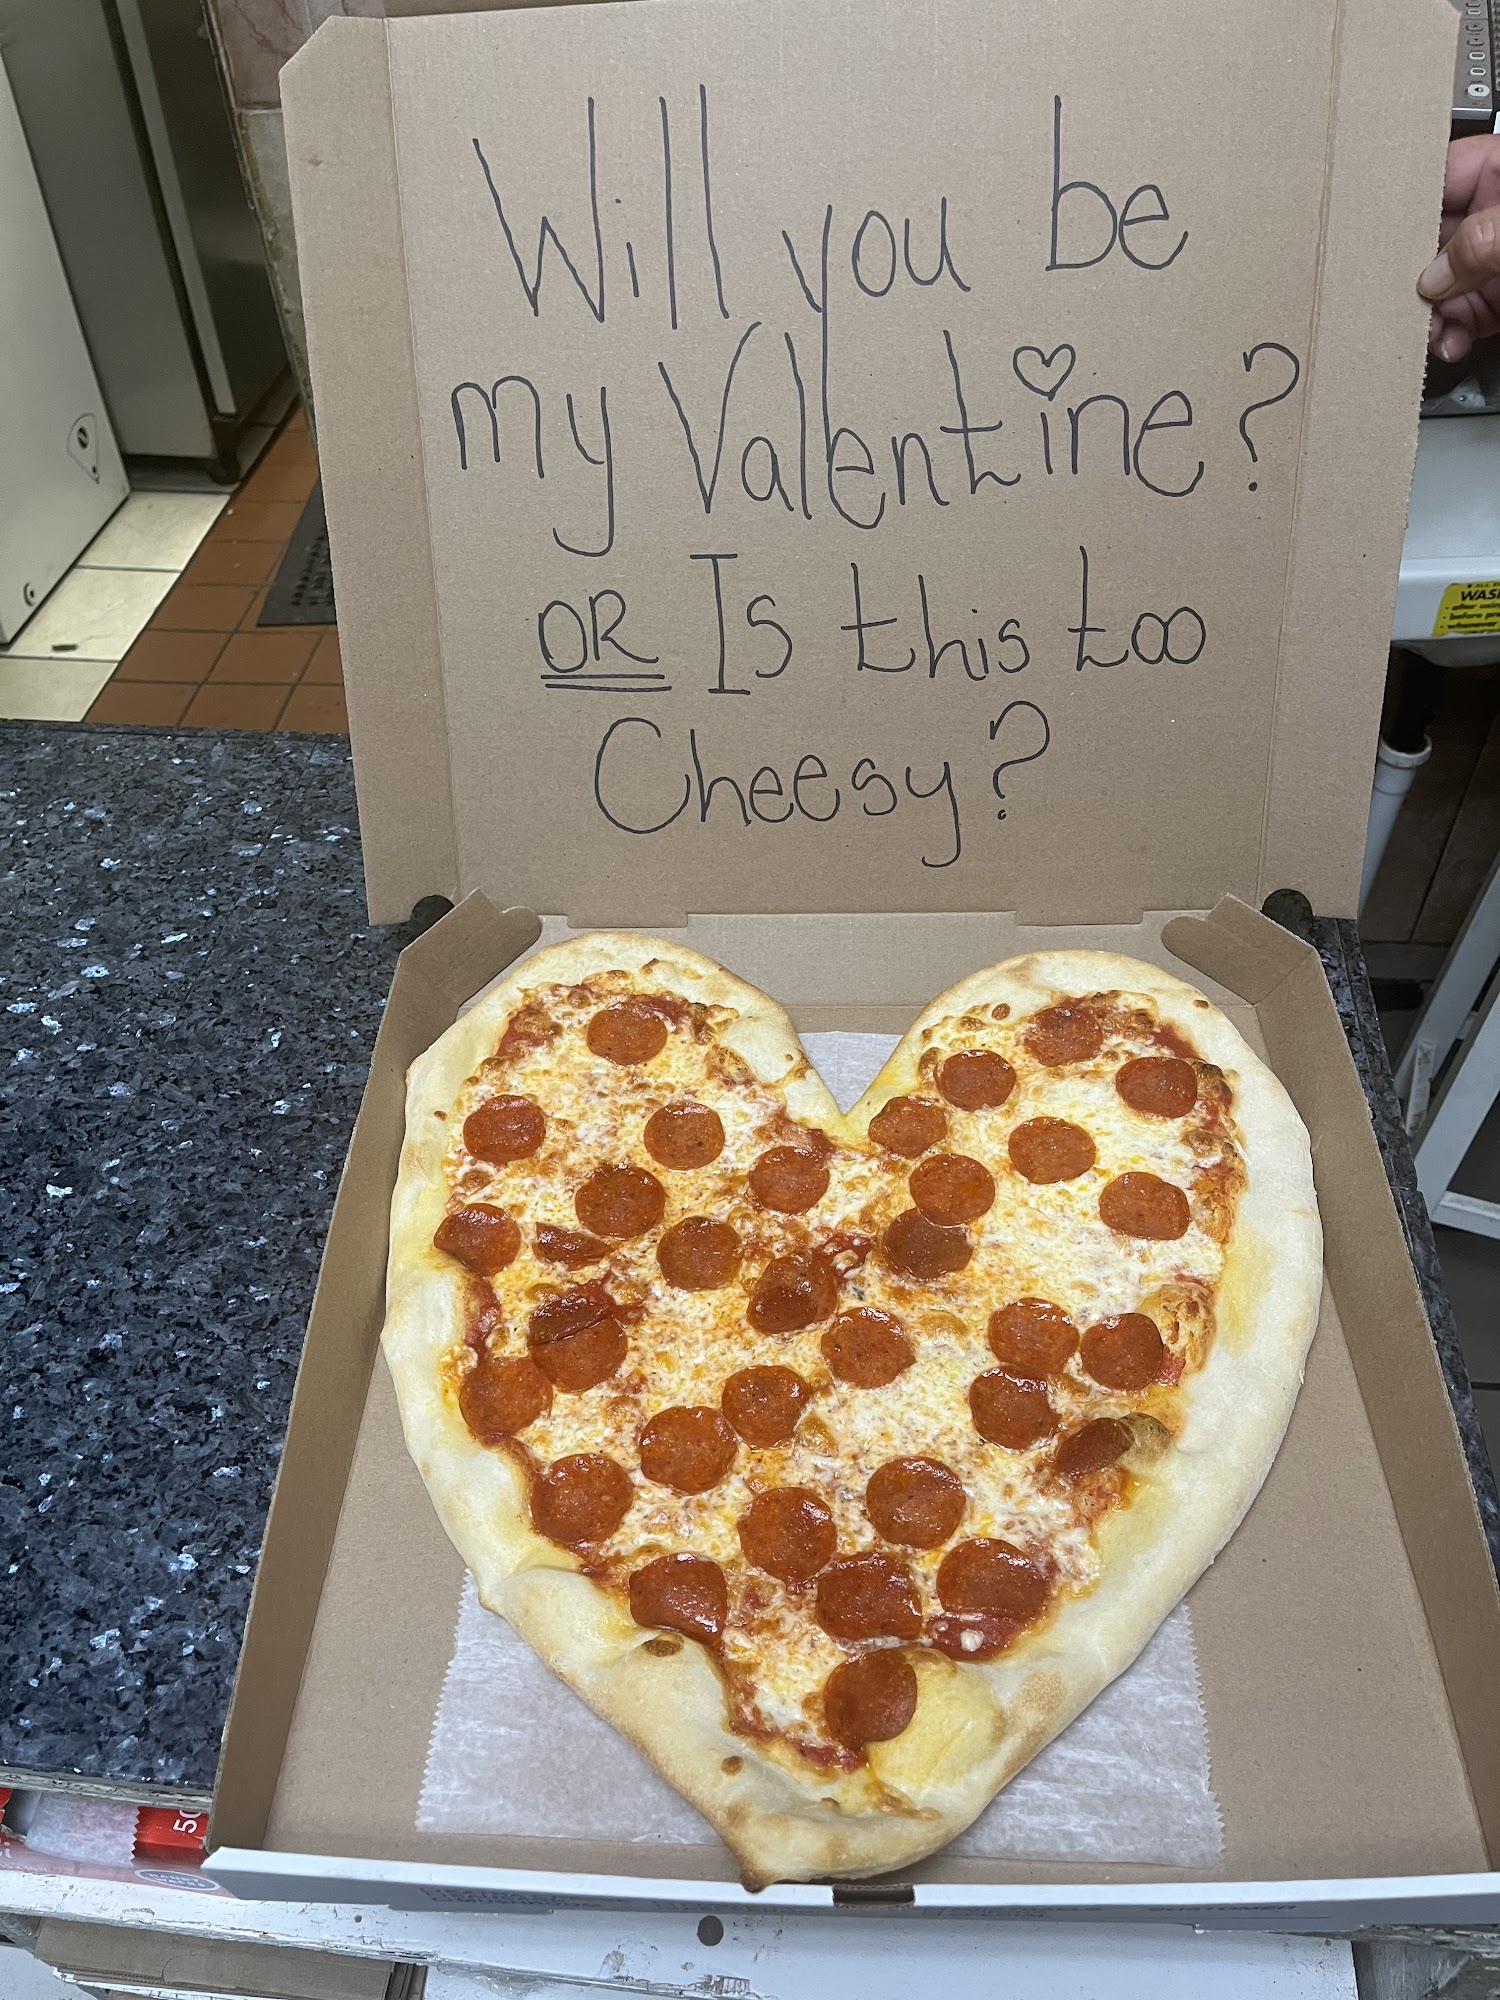 Will you be
my Valentine?
OR Is this too
Cheesy?
WAS
50
CUSTOMER